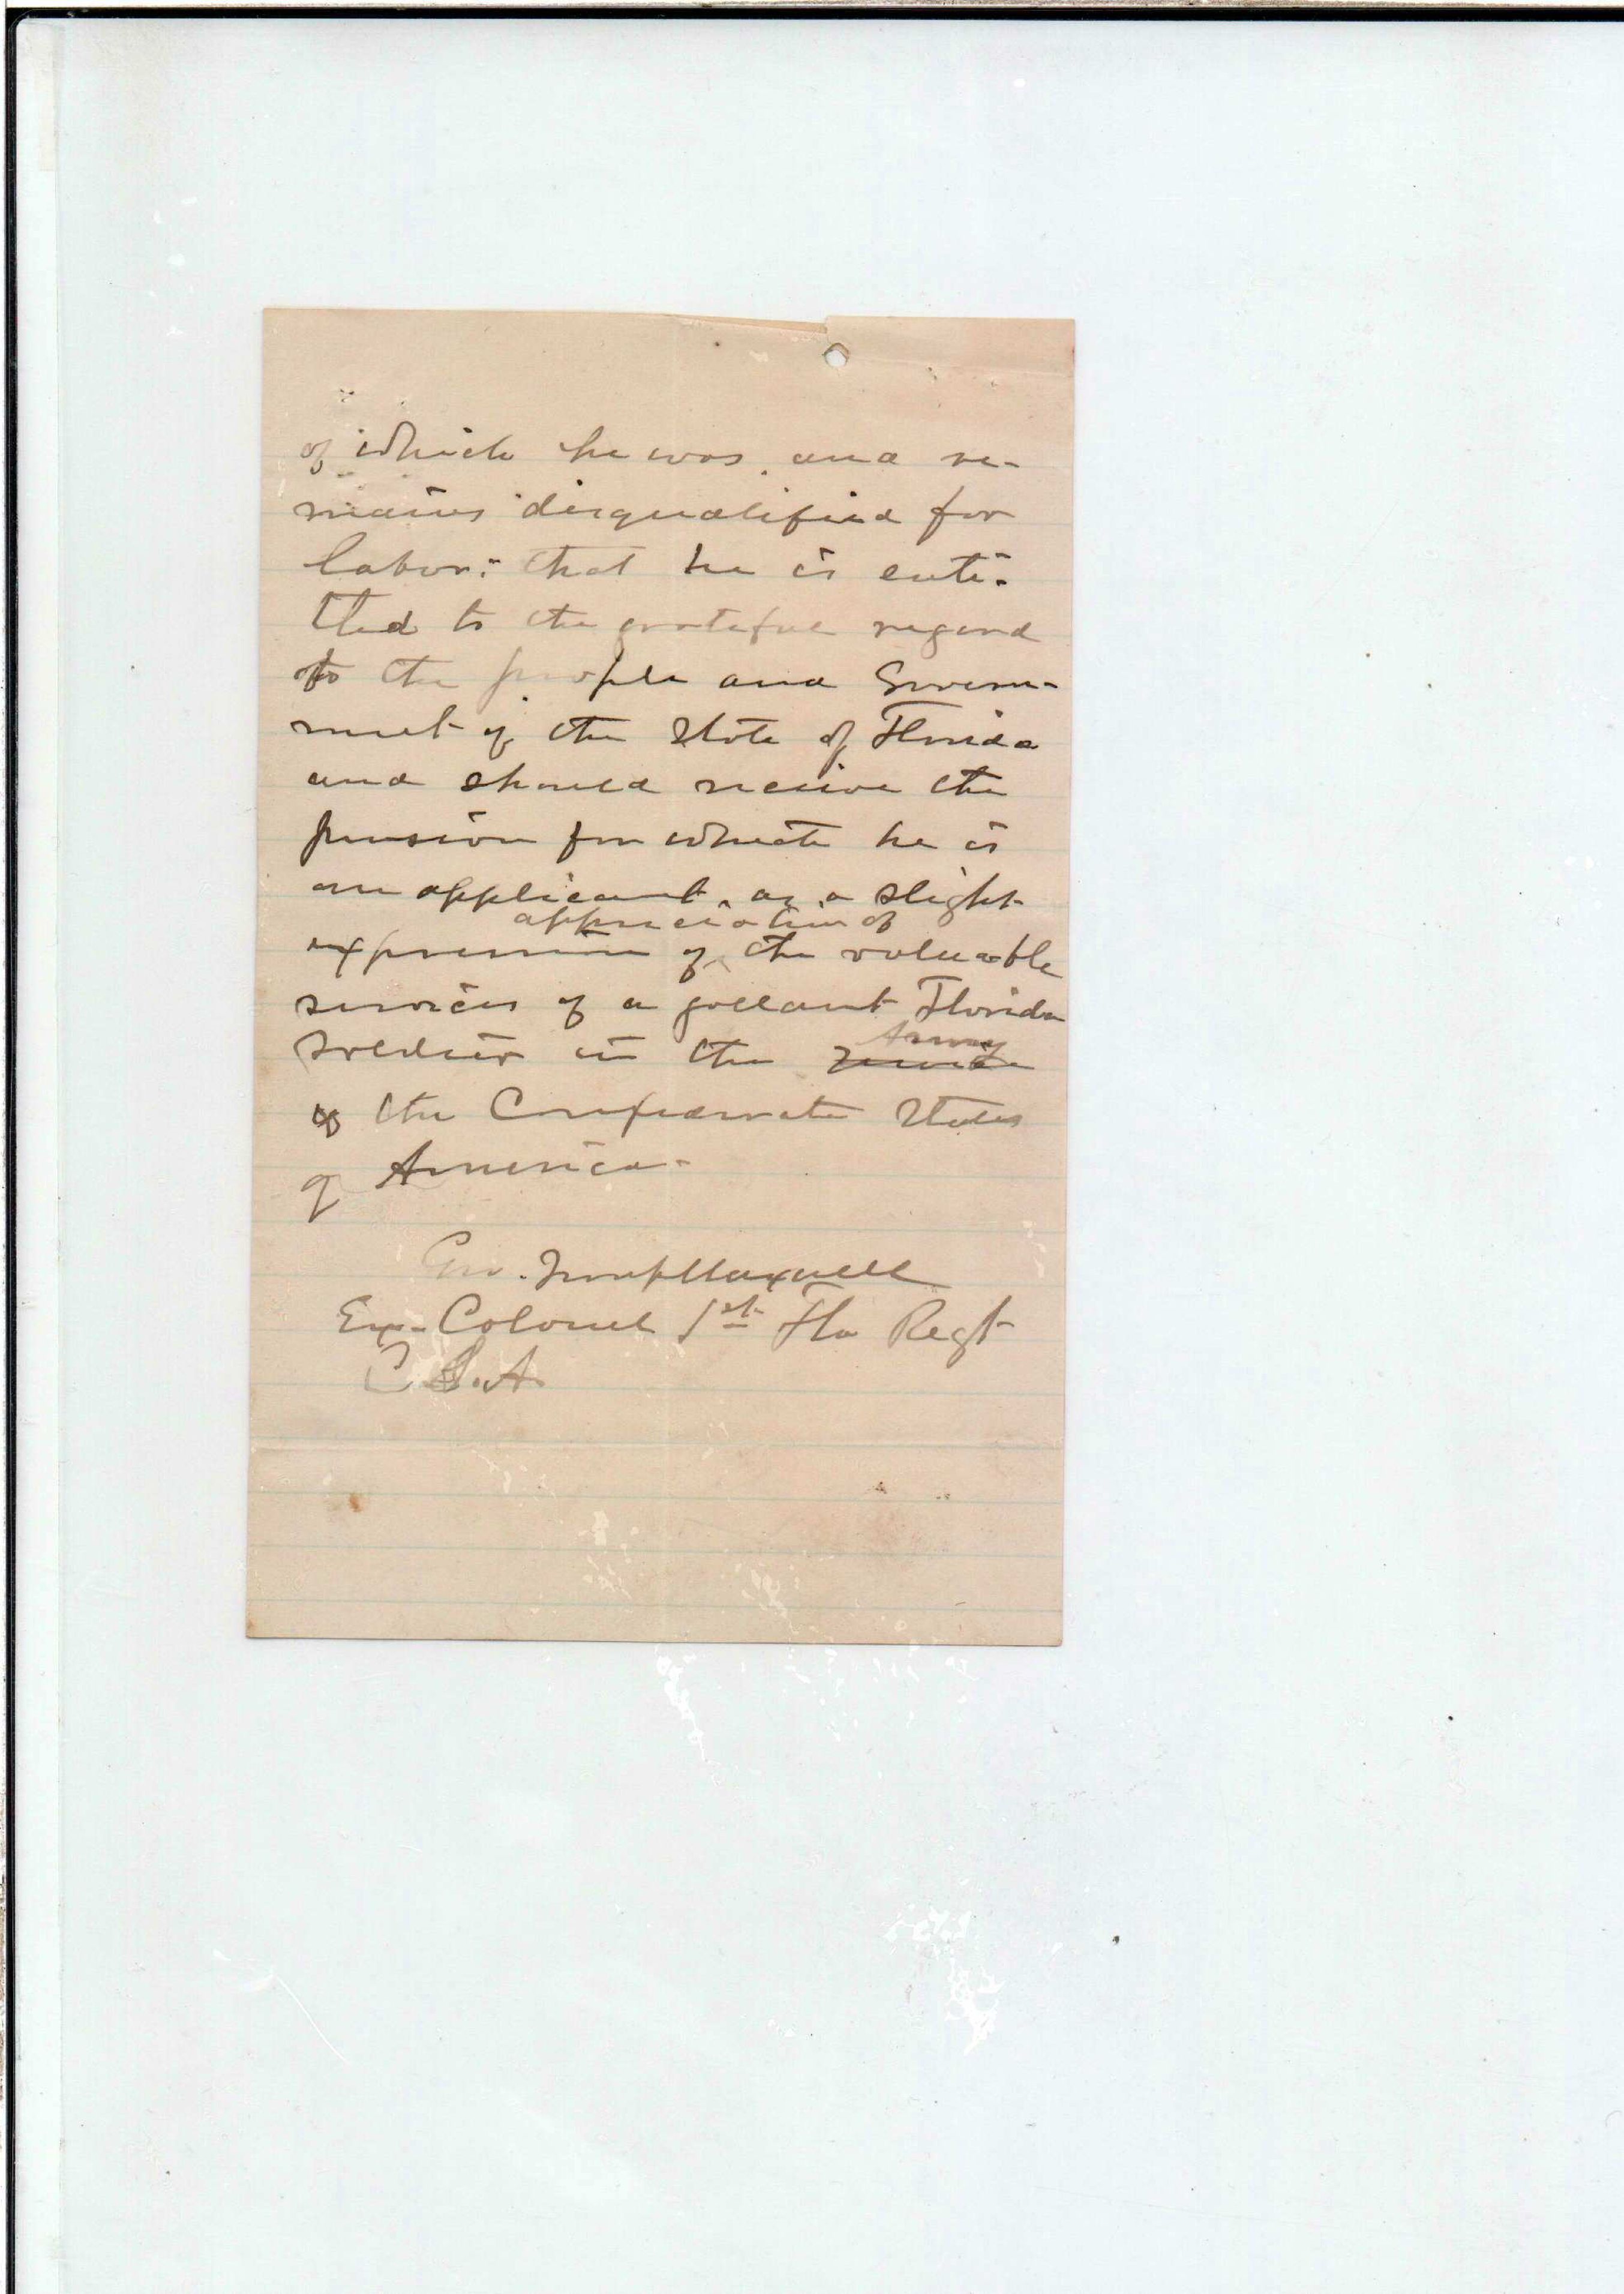 of which he was, and re-
mains disqualified for
labor: that he is enti-
tled to the grateful regard
to the people and Govern-
ment of the State of Florida
and should receive the
pension for which he is
an applicant, as a slight
appreciation of
expression of the valuable
services of a gallant Florida
Army
soldier in the service
of the Confederate States
of America-
Geo. Troup Maxwell
Ex-Colonel 1st Fla Regt
C.S.A.